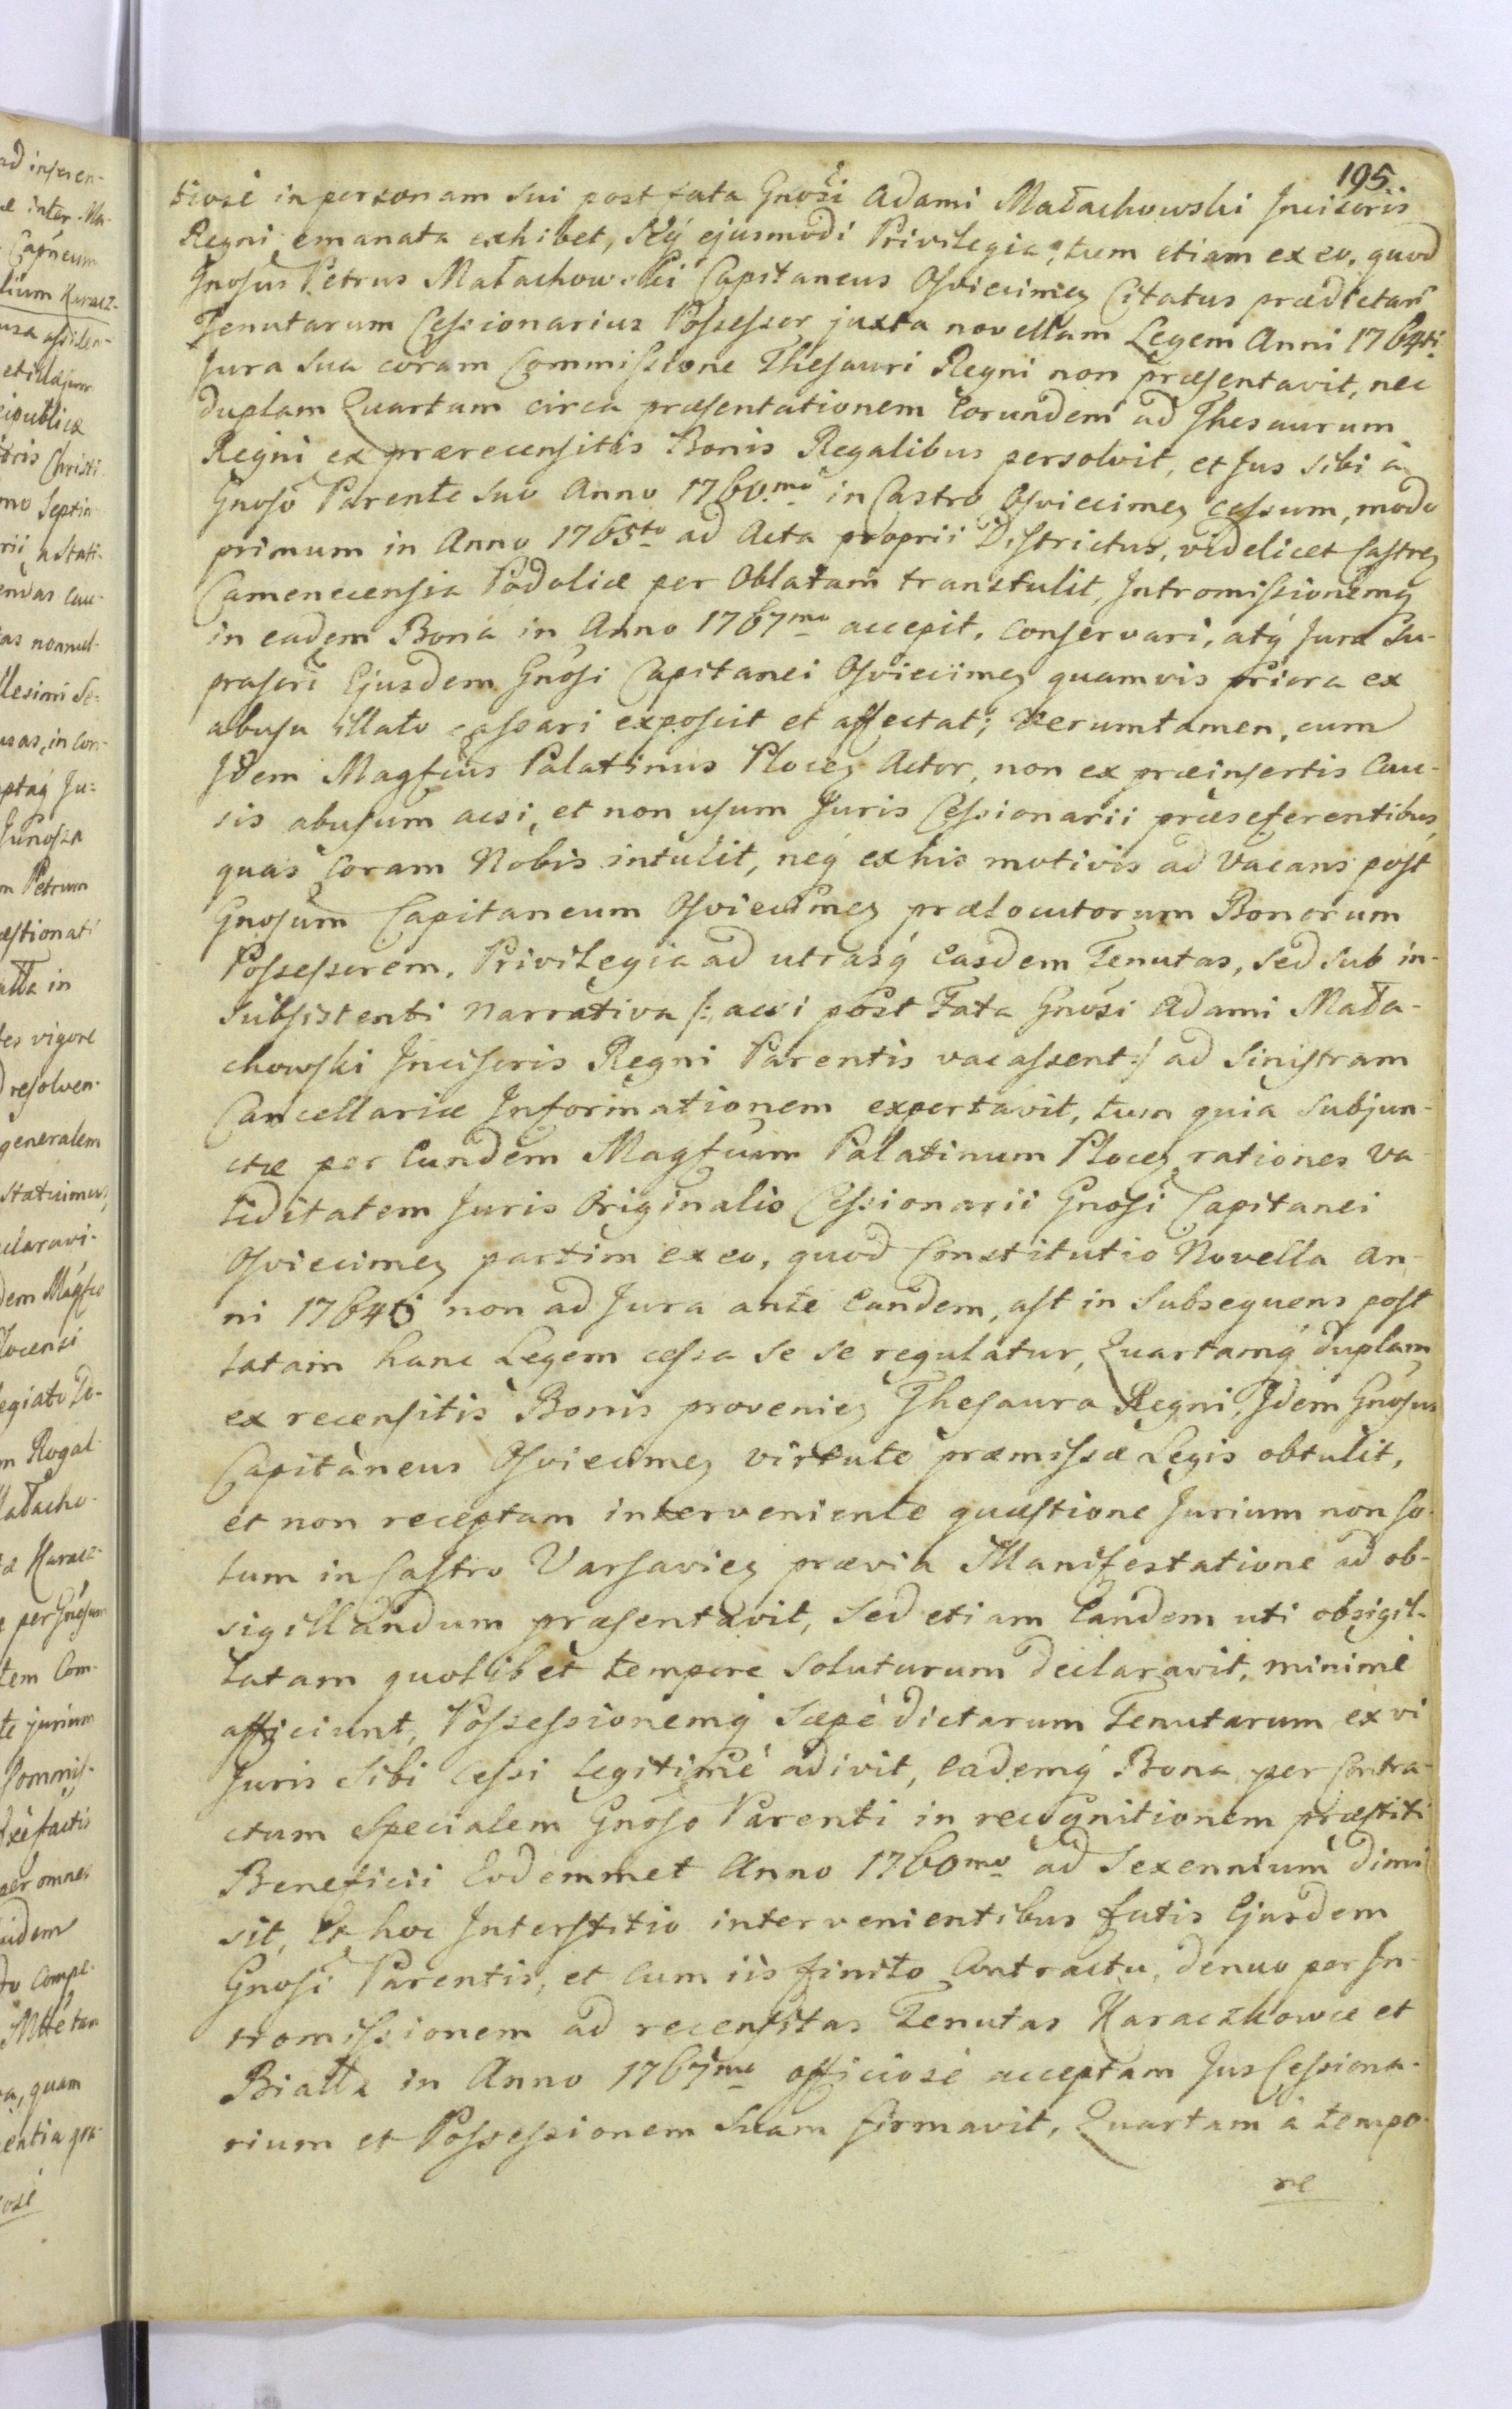 195.
tiose in personam sui post fata Gnosi Adami Małachowski Incisoris
Regni emanata exhibet, stý ejusmodi Privilegia, tum etiam ex eo, quod
Gnosus Petrus Małachowski Capitaneus Osviecimeȝ Citatus prædictarũ
Tenutarum Cessionarius Possessor juxta novellam Legem Anni 1764ti
Jura sua coram Commissione Thesauri Regni non præsentavit, nec
duplam Quartam circa præsentationem Eorundem ad Thesaurum
Regni ex prærecensitis Bonis Regalibus persolvit, et Jus sibi à
Gnoso Parente suo Anno 1760.mo in Castro Osviecimeȝ cessum, modo
primum in Anno 1765to ad Acta proprii Districtus, videlicet Castreȝ
Camenecensia Podoliæ per Oblatam transtulit, Intromissionemq́
in eadem Bona in Anno 1767mo accepit, conservari, atq́ Jura Su-
prascri Ejusdem Gnosi Capitanei Osviecimeȝ quamvis priora ex
abusu illato cassari exposcit et affectat; Verumtamen, cum
Idem Magfcus Palatinus Ploceȝ Actor, non ex præinsertis Cau-
sis abusum acsi, et non usum Juris Cessionarii præseferentibus,
quas Coram Nobis intulit, neq́ ex his motivis ad Vacans post
Gnosum Capitaneum Osviecimeȝ prælocutorum Bonorum
Possessorem, Privilegia ad utrasq́ Easdem Tenutas, sed sub in-
subsistenti narrativa /: acsi post Fata Gnosi Adami Mała-
chowski Incisoris Regni Parentis vacassent :/ ad Sinistram
Cancellariæ Informationem exportavit, tum quia subjun-
ctæ per Eundem Magfcum Palatinum Ploceȝ rationes va-
liditatem Juris Originalis Cessionarii Gnosi Capitanei
Osviecimeȝ partim ex eo, quod Constitutio Novella An-
ni 1764ti non ad Jura ante Eandem, ast in Subsequens post
latam hanc Legem cessa se se regulatur, Quartamq́ duplam
ex recensitis Bonis provenieȝ Thesauro Regni, Idem Gnosus
Capitaneus Osviecimeȝ virtute præmissæ Legis obtulit,
et non receptam interveniente quæstione Jurium non so-
lum in Castro Varsavieȝ prævia Manifestatione ad ob-
sigillandum præsentavit, sed etiam Eandem uti obsigil-
latam quolibet tempore soluturum declaravit, minime
afficiunt, Possessionemq́ Sæpe dictarum Tenutarum ex vi
Juris Sibi Cessi Legitimè adivit, Eademq́ Bona per Contra-
ctum Specialem Gnoso Parenti in recognitionem præstiti
Beneficii Eodemmet Anno 1760mo ad Sexennium dimi
sit, Et hoc Interstitio intervenientibus fatis Ejusdem
Gnosi Parentis, et cum iis finito Contractu, denuo per In-
tromissionem ad recensitas Tenutas Karaczkowce et
Białła in Anno 1767mo officiose acceptam Jus Cessiona-
rium et Possessionem Suam firmavit, Quartam à tempo-
re